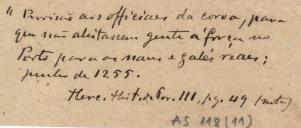 " Provisão aos officiaes da coroa, para
que não alistassem gente á força no
Porto para as naus e galés reaes;
junho de 1255.
Herc. Hist. de Por. III, pg. 49 (nota)
AS 118 (11)